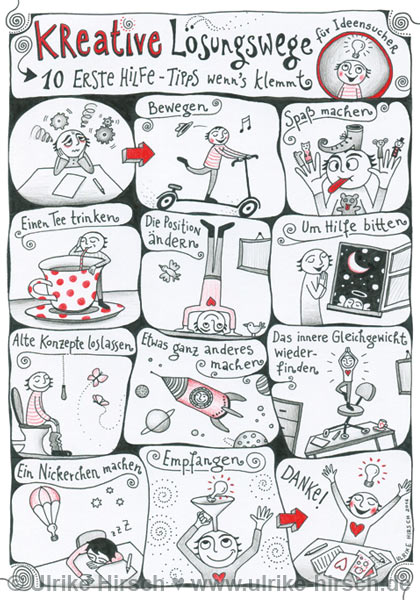 © Ulrike Hirsch ♥ www.ulrike-hirsch.de
KReative Lösungswege
für Ideensucher
10 ERSTE HilfE-Tipps wenn's klemmt
Bewegen
Spaß machen
Einen Tee trinken
Die Position
ändern
Um Hilfe bitten
Alte Konzepte loslassen
Etwas ganz anderes
machen
Das innere Gleichgewicht
wieder-
finden
Ein Nickerchen machen
zzZ
Empfangen
DANKE!
© Ulrike Hirsch ♥ www.ulrike-hirsch.de